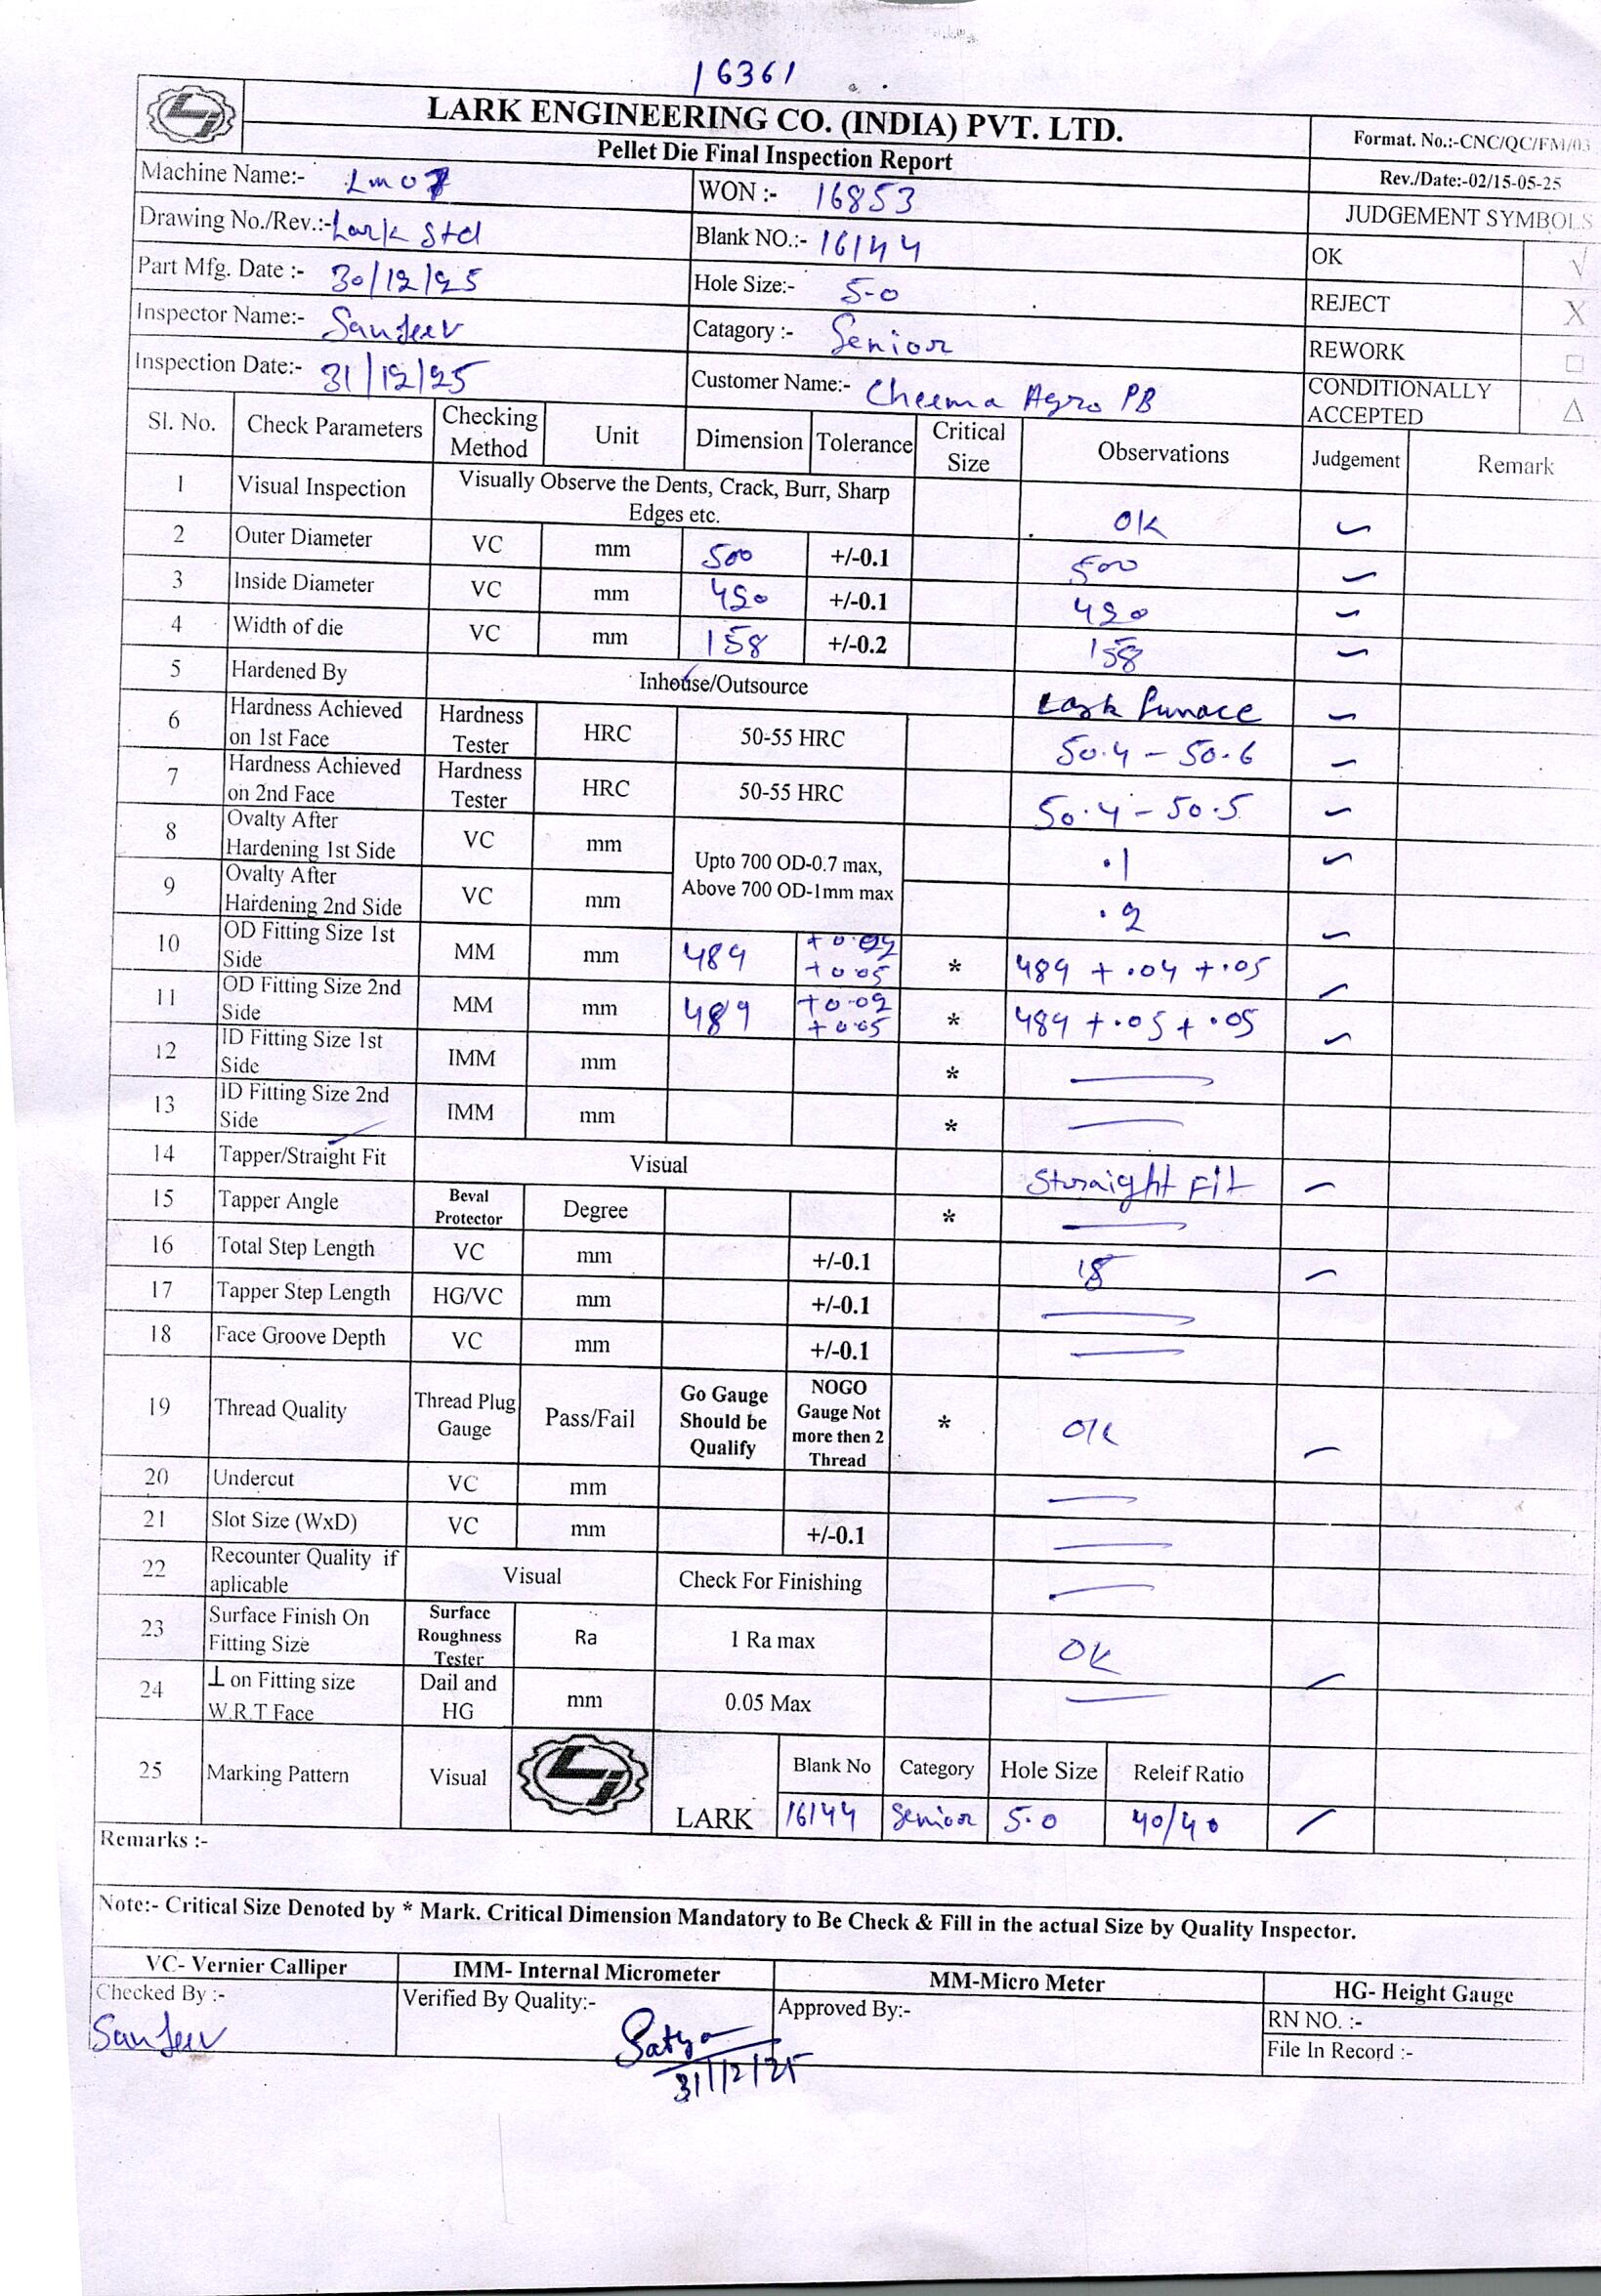 16361
LARK ENGINEERING CO. (INDIA) PVT. LTD.
Pellet Die Final Inspection Report
Format. No.:-CNC/QC/FM/03
Rev./Date:-02/15-05-25
Machine Name:- Lm07
WON :- 16853
JUDGEMENT SYMBOLS
Drawing No./Rev.:- Lark Std
Blank NO.:- 16144
OK √
Part Mfg. Date :- 30/12/25
Hole Size:- 5.0
REJECT X
Inspector Name:- Sanjeev
Catagory :- Senior
REWORK □
Inspection Date:- 31/12/25
Customer Name:- Cheema Agro PB
CONDITIONALLY ACCEPTED △
Sl. No. Check Parameters Checking Method Unit Dimension Tolerance Critical Size Observations Judgement Remark
1 Visual Inspection Visually Observe the Dents, Crack, Burr, Sharp Edges etc. OK
2 Outer Diameter VC mm 500 +/-0.1 500
3 Inside Diameter VC mm 420 +/-0.1 420
4 Width of die VC mm 158 +/-0.2 158
5 Hardened By Inhouse/Outsource Lark furnace
6 Hardness Achieved on 1st Face Hardness Tester HRC 50-55 HRC 50.4 - 50.6
7 Hardness Achieved on 2nd Face Hardness Tester HRC 50-55 HRC 50.4 - 50.5
8 Ovalty After Hardening 1st Side VC mm Upto 700 OD-0.7 max, Above 700 OD-1mm max .1
9 Ovalty After Hardening 2nd Side VC mm .2
10 OD Fitting Size 1st Side MM mm 489 +0.02 +0.05 * 489 +.04 +.05
11 OD Fitting Size 2nd Side MM mm 489 +0.02 +0.05 * 489 +.05 +.05
12 ID Fitting Size 1st Side IMM mm *
13 ID Fitting Size 2nd Side IMM mm *
14 Tapper/Straight Fit Visual Straight Fit
15 Tapper Angle Beval Protector Degree *
16 Total Step Length VC mm +/-0.1 18
17 Tapper Step Length HG/VC mm +/-0.1
18 Face Groove Depth VC mm +/-0.1
19 Thread Quality Thread Plug Gauge Pass/Fail Go Gauge Should be Qualify NOGO Gauge Not more then 2 Thread * OK
20 Undercut VC mm
21 Slot Size (WxD) VC mm +/-0.1
22 Recounter Quality if aplicable Visual Check For Finishing
23 Surface Finish On Fitting Size Surface Roughness Tester Ra 1 Ra max OK
24 ⊥ on Fitting size W.R.T Face Dail and HG mm 0.05 Max
25 Marking Pattern Visual LARK Blank No Category Hole Size Releif Ratio
16144 Senior 5.0 40/40
Remarks :-
Note:- Critical Size Denoted by * Mark. Critical Dimension Mandatory to Be Check & Fill in the actual Size by Quality Inspector.
VC- Vernier Calliper IMM- Internal Micrometer MM-Micro Meter HG- Height Gauge
Checked By :- Verified By Quality:- Approved By:- RN NO. :-
Sanjeev Satya File In Record :-
31/12/25